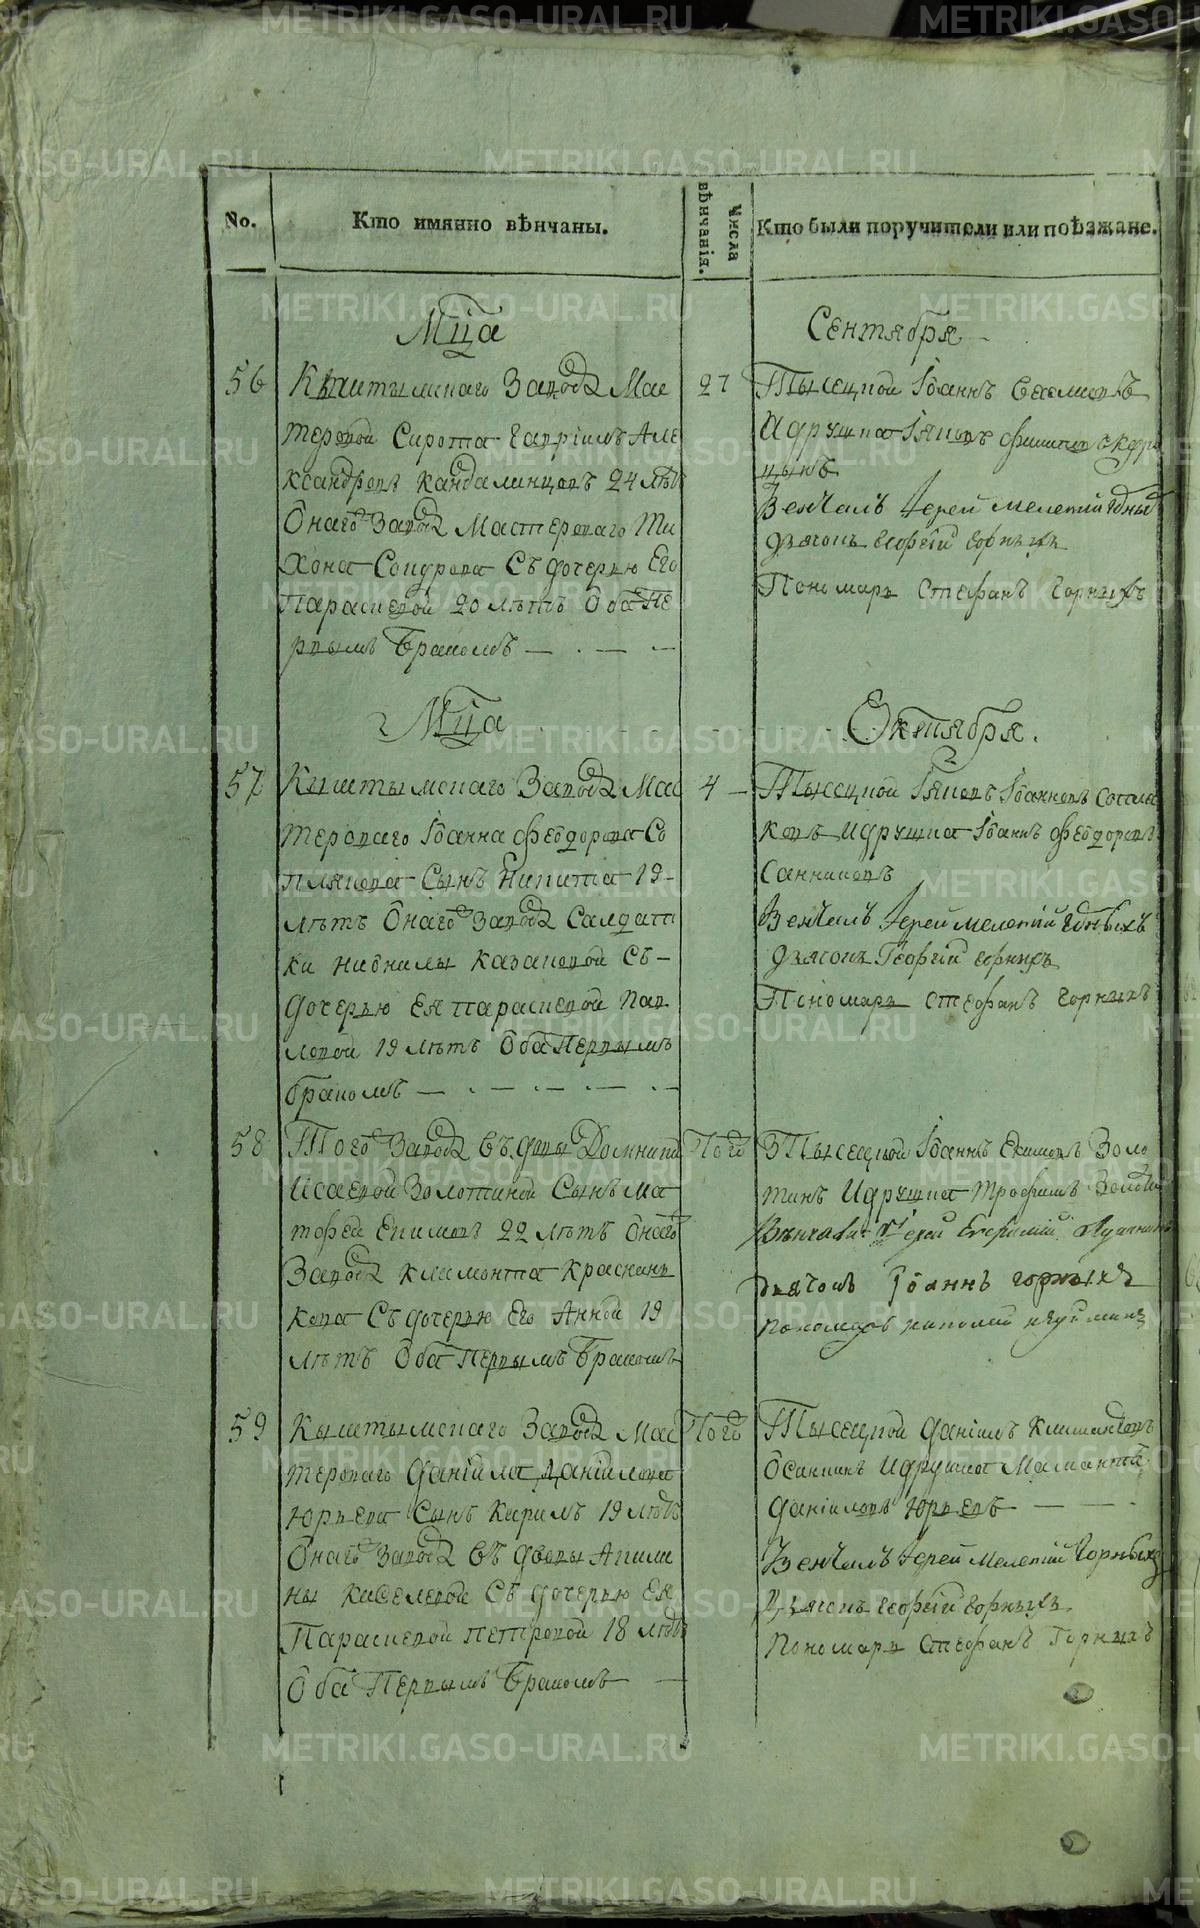 No.
Кто имянно вѣнчаны.
Числа вѣнчанія.
Кто были поручители или поѣзжане.
Мца
Сентября
56
Кыштымскаго Завода Мас
теровой Сирота Гавріилъ Але
ксандровъ Кандалинцовъ 24 лѣтъ
Онаго Завода Мастероваго Ти
хона Сокурова Съ дочерью Его
Параскевой 20 лѣтъ Оба Пе
рвымъ Бракомъ
27
Тысецкой Іоаннъ
Идрушка Іяковъ
цынъ
Венчалъ Іерей Мелетий
Дьячокъ Георгій Горныхъ
Пономарь Стефанъ Горныхъ
Мца
Октября.
57
Кыштымскаго Завода Мас
тероваго Іоанна Феодорова Со
плякова Сынъ Никита 19
лѣтъ Онаго Завода Салдатк
ки Казаковой Съ
дочерью Ея Параскевой Пав
ловой 19 лѣтъ Оба Первымъ
Бракомъ
4
Тысецкой Іяковъ Іоанновъ
ковъ Идрушка Іоаннъ Феодоровъ
Санниковъ
Венчалъ Іерей Мелетій Горныхъ
Дьячокъ Георгій Горныхъ
Пономарь Стефанъ Горныхъ
58
Того Завода Въдовы Домники
Исаевой Золотиной Сынъ Ма
тофей Екимовъ 22 лѣтъ Онаго
Завода Климонта Краснин
кова Съ дочерью Его Анной 19
лѣтъ Оба Первымъ Бракомъ
Того
Тысецкой Іоаннъ Екимовъ Золо
тинъ Идрушка Трофимъ
Вѣнчалъ Іерей
Дьячокъ Іоаннъ Горныхъ
Пономарь
59
Кыштымскаго Завода Мас
тероваго Даніила Даніилова
Юрьева Сынъ Кирилъ 19 лѣтъ
Онаго Завода Въдовы Акили
ны Киселевой Съ дочерью Ея
Параскевой Петровой 18 лѣтъ
Оба Первымъ Бракомъ
Того
Тысецкой Даніилъ
Осанкинъ Идрушка Мамантъ
Даніиловъ Юрьевъ
Венчалъ Іерей Мелетій Горныхъ
Дьячокъ Георгій Горныхъ
Пономарь Стефанъ Горныхъ
METRIKI.GASO-URAL.RU